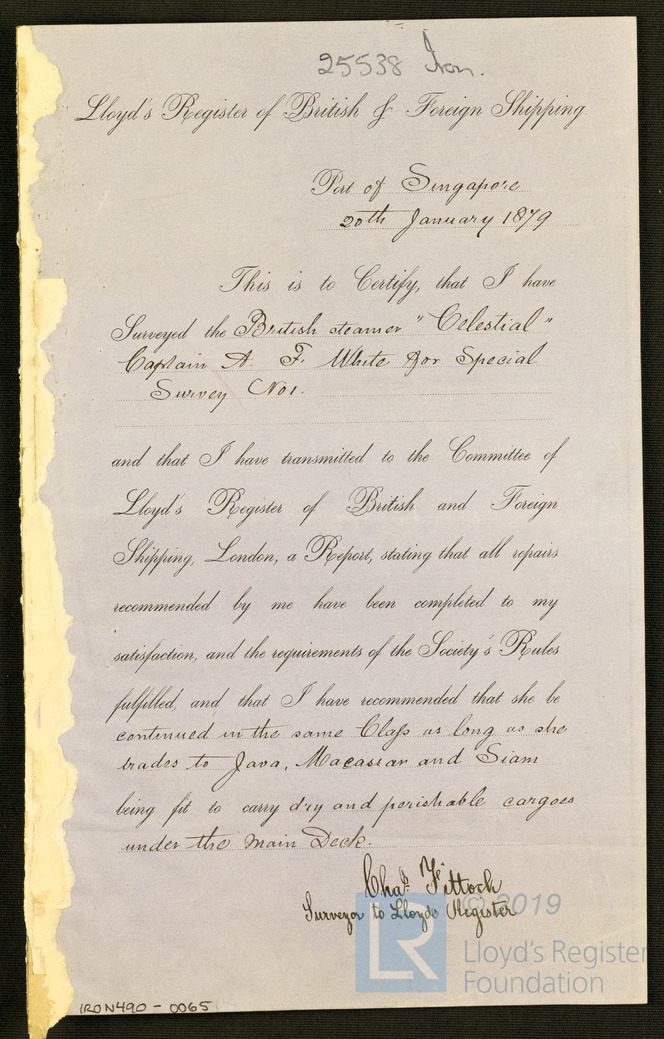 25538 Iron.
Lloyd's Register of British & Foreign Shipping.
Port of Singapore
20th January 1879
This is to Certify, that I have
Surveyed the British steamer "Celestial"
Captain A. F. White for Special
Survey No1.
and that I have transmitted to the Committee of
Lloyd's Register of British and Foreign
Shipping, London, a Report, stating that all repairs
recommended by me have been completed to my
satisfaction, and the requirements of the Society's Rules
fulfilled, and that I have recommended that she be
continued in the same Class as long as she
trades to Java, Macassar and Siam
being fit to carry dry and perishable cargoes
under the Main Deck.
Chas. Fittock
Surveyor to Lloyds Register
© 2019
LR
Lloyd's Register
Foundation
IRON490 - 0065